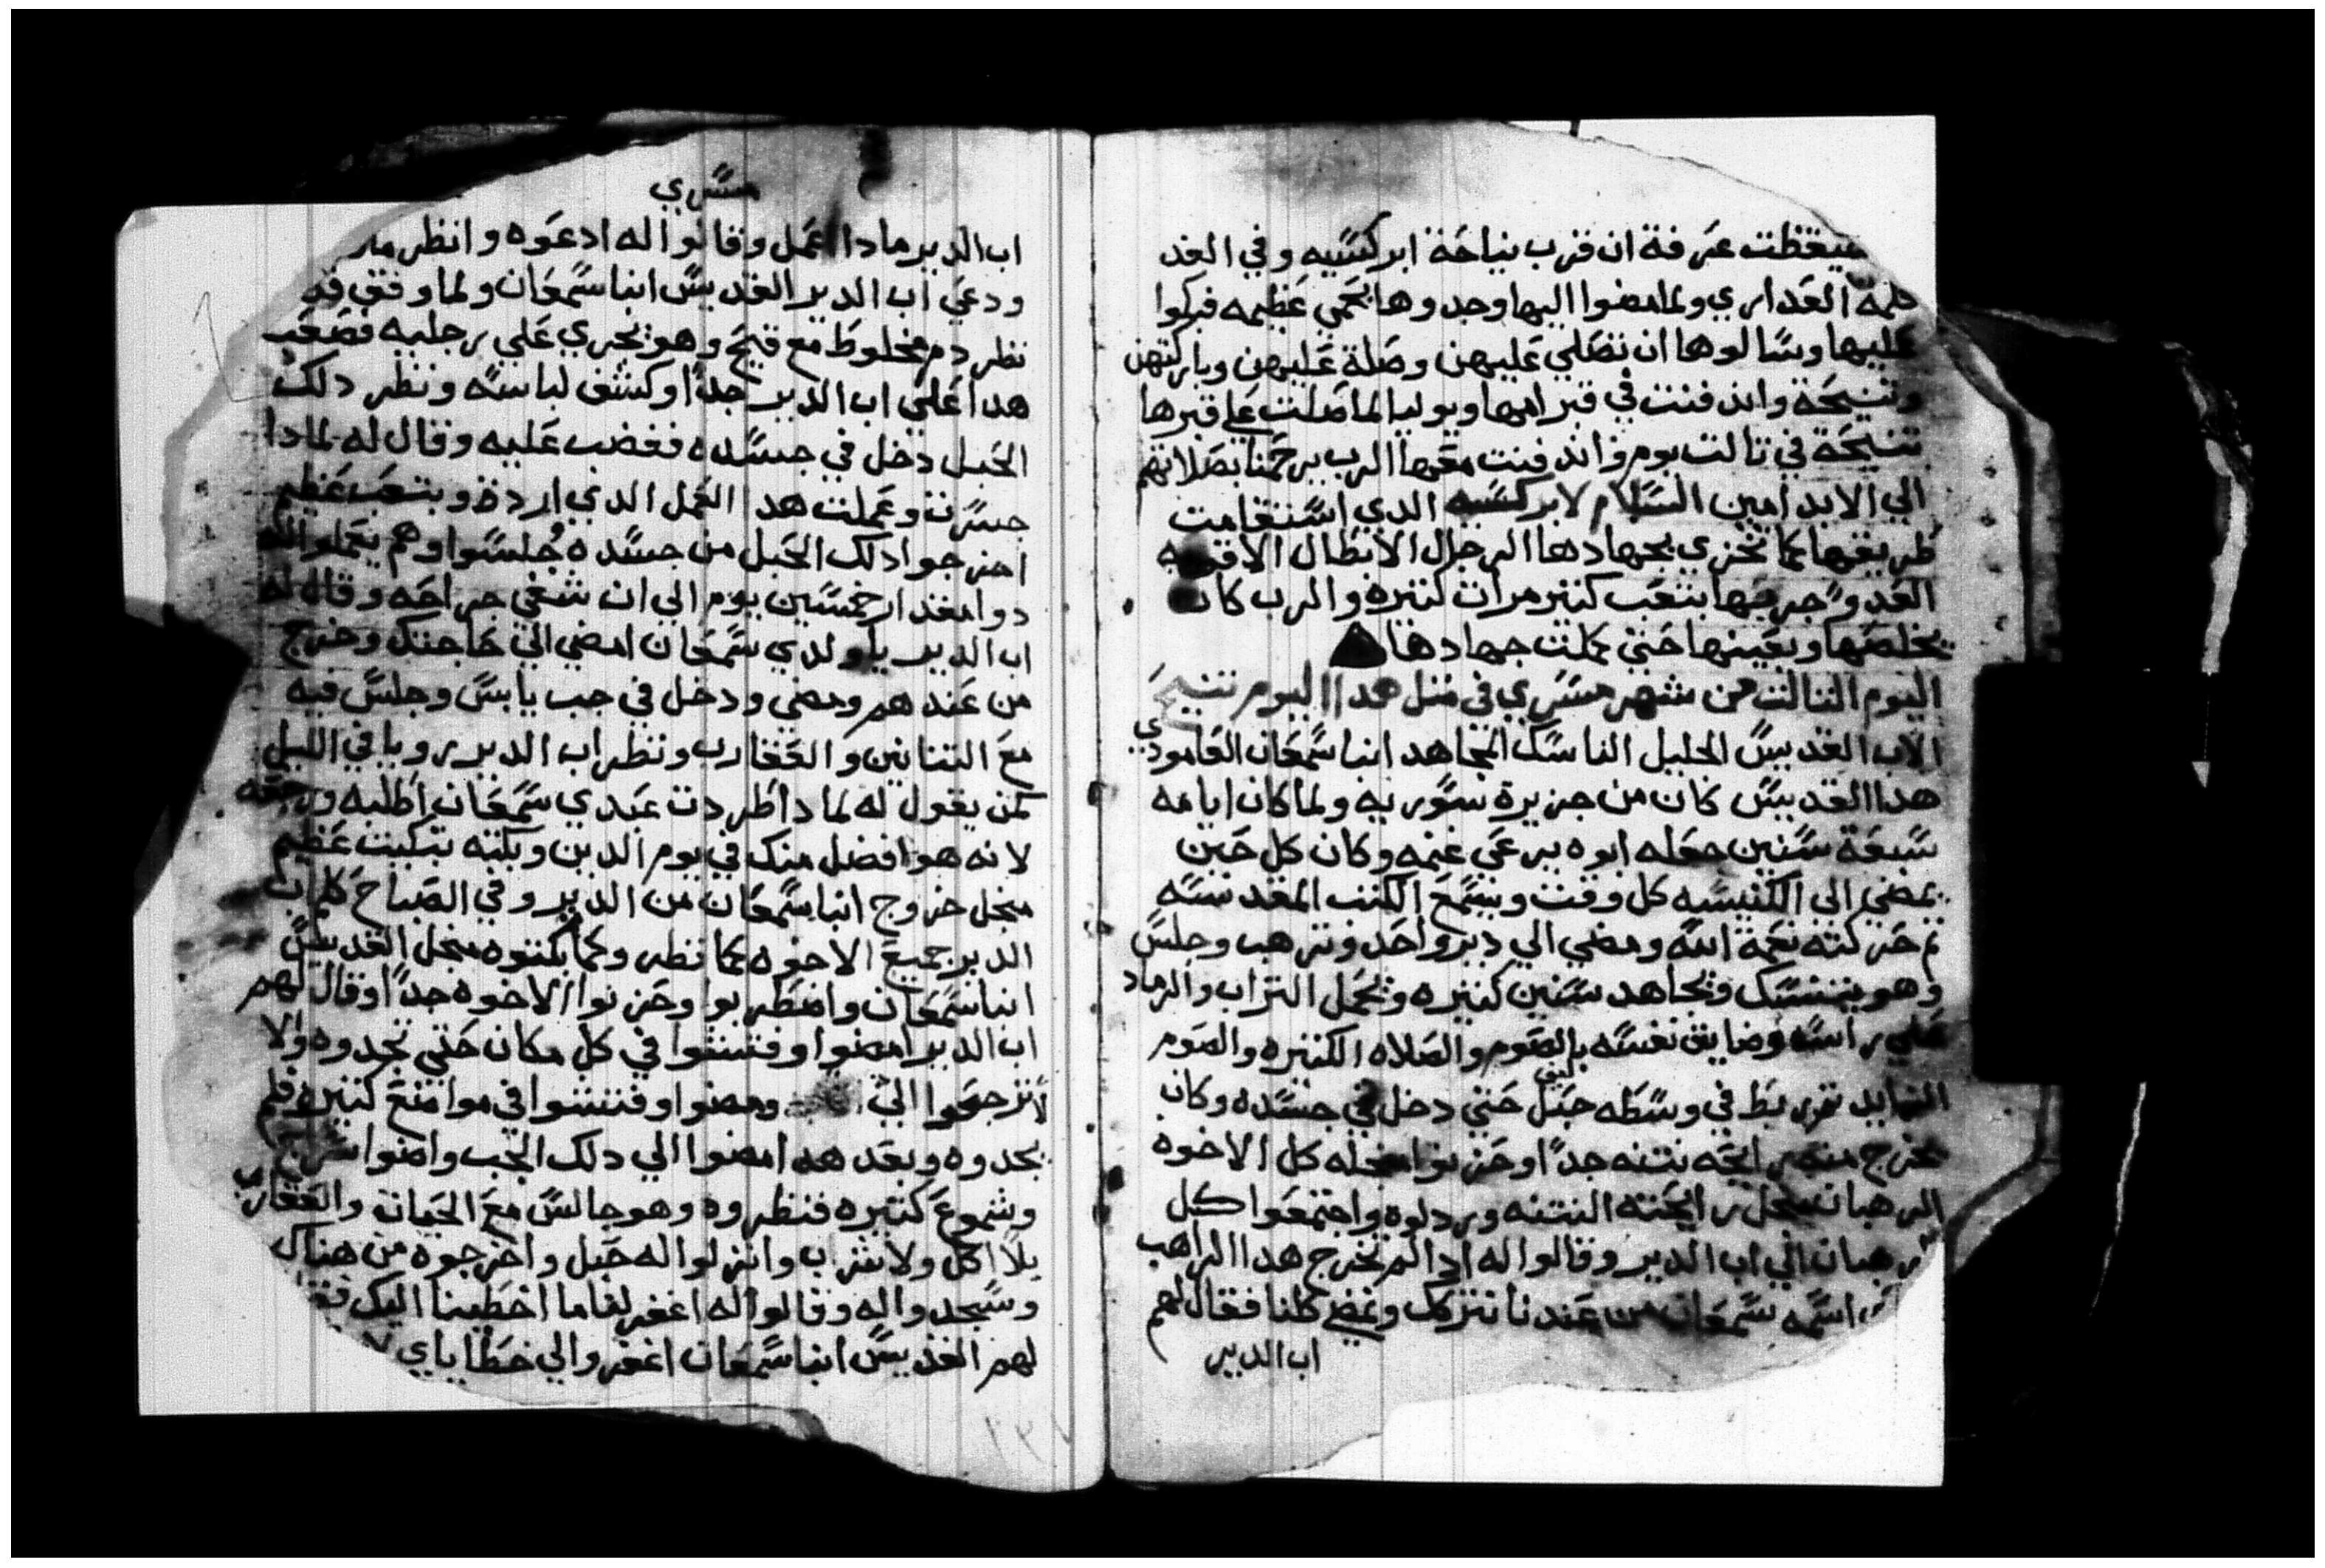 ستيقظت عرفة ان قرب نياحة ابركسيه وفي الغد
العداري ولما مضوا اليها وجدوها بحمي عظيمه فبركوا
عليها وسالوها ان تصلي عليهن وصلة عليهن وباركتهن
وتنيحة واندفنت في قبر امها ويوليا لما صلت علي قبرها
تنيحة في تالت يوم واندفنت معها الرب يرحمنا بصلاتهم
الي الابد امين السلام لابركسيه الدي استقامت
طريقها كما تخزي بجهادها الرجال الابطال الاقويه
العدو جربها بتعب كتير مرات كتيره والرب كان
يخلصها ويعينها حتي كملت جهادها
اليوم التالت من شهر مسري في متل هدا اليوم تنيح
الاب القديس الجليل الناسك المجاهد انبا سمعان العامودي
هدا القديس كان من جزيرة سوريه ولما كان ايامه
سبعة سنين جعله ابوه يرعي غنمه وكان كل حين
يمضي الي الكنيسه كل وقت ويسمع الكتب المقدسه
تم حركته نعمة الله ومضي الي دير واحد وترهب وجلس
وهو يتنسك ويجاهد سنين كتيره ويحمل التراب والرماد
علي راسه وضايق نفسه بالصوم والصلاه الكتيره والصوم
الزايد تم ربط في وسطه حبل ليف حتي دخل في جسده وكان
يخرج منه رايحه نتنه جدا وحزنوا منجله كل الاخوه
الرهبان منجل رايحته النتنه وردلوه واجتمعوا كل
الرهبان الي اب الدير وقالوا له ادا لم تخرج هدا الراهب
اسمه سمعان من عندنا نتركك ونمضي كلنا فقال لهم
اب الدير
مسري
اب الدير مادا اعمل وقالوا له ادعوه وانظر
ودعي اب الدير القديس انبا سمعان ولما وقف
نظر دم مخلوط مع قيح وهو يجري علي رجليه فصعب
هدا علي اب الدير جدا وكشف لباسه ونظر دلك
الحبل دخل في جسده فغضب عليه وقال له لمادا
جسرت وعملت هدا العمل الدي اردة وبتعب عظيم
اخرجوا دلك الحبل من جسده وجلسوا وهم يعملوا له
دوا مقدار خمسين يوم الي ان شفي جراحه وقال له
اب الدير يا ولدي سمعان امضي الي حاجتك وخرج
من عندهم ومضي ودخل في جب يابس وجلس فيه
مع التنانين والعقارب ونظر اب الدير رويا في الليل
كمن يقول له لمادا طردت عبدي سمعان اطلبه ورجعه
لانه هو افضل منك في يوم الدين وبكته تبكيت عظيم
منجل خروج انبا سمعان من الدير وفي الصباح كلم اب
الدير جميع الاخوه كما نظر وكما بكتوه منجل القديس
انبا سمعان واضطربوا وحزنوا الاخوه جدا وقال لهم
اب الدير امضوا وفتشوا في كل مكان حتي تجدوه ولا
لا ترجعوا الي ومضوا وفتشوا في مواضع كتيره فلم
يجدوه وبعد هدا مضوا الي دلك الجب واضوا سرج
وشموع كتيره فنظروه وهو جالس مع الحيات والعقارب
بلا اكل ولا شراب وانزلوا له حبل واخرجوه من هناك
وسجدوا له وقالوا له اغفر لنا ما اخطينا اليك فقال
لهم القديس انبا سمعان اغفروا لي خطاياي